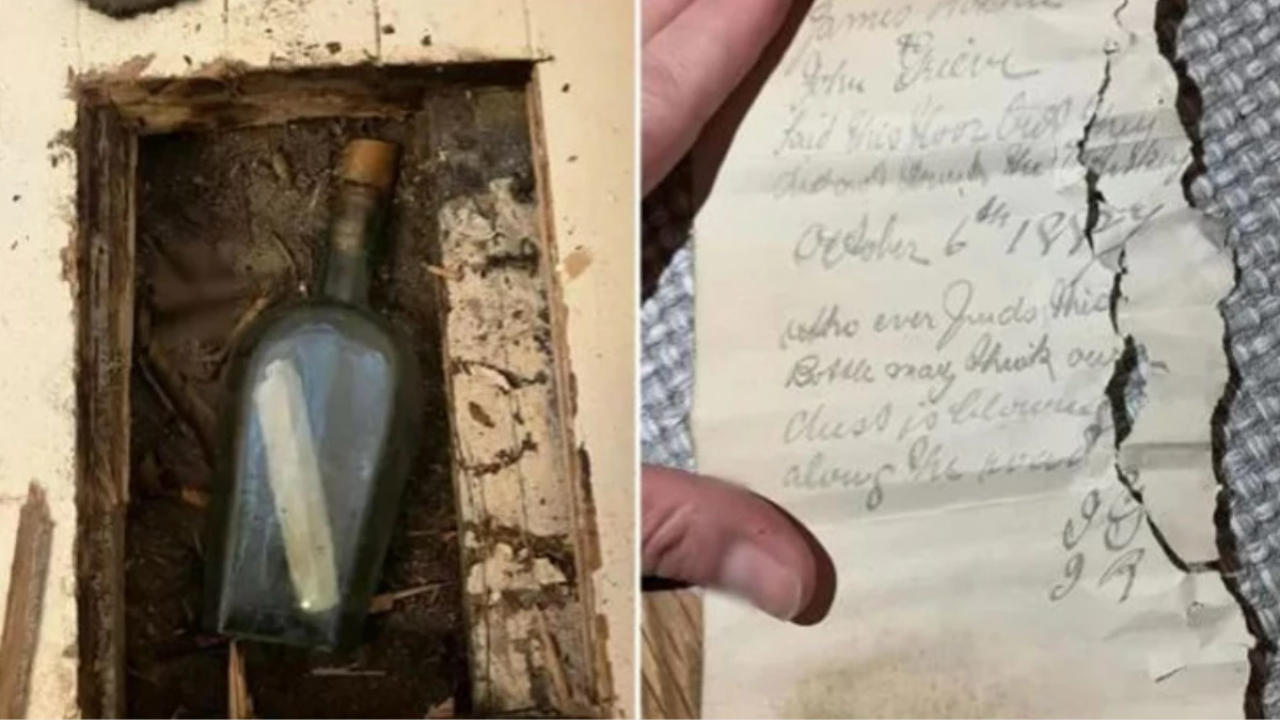 James
John Grieve
Laid this floor but they
did not drink the whisky
October 6th 1887
who ever finds this
Bottle may think our
dust is blowing
along the road
J G
J R